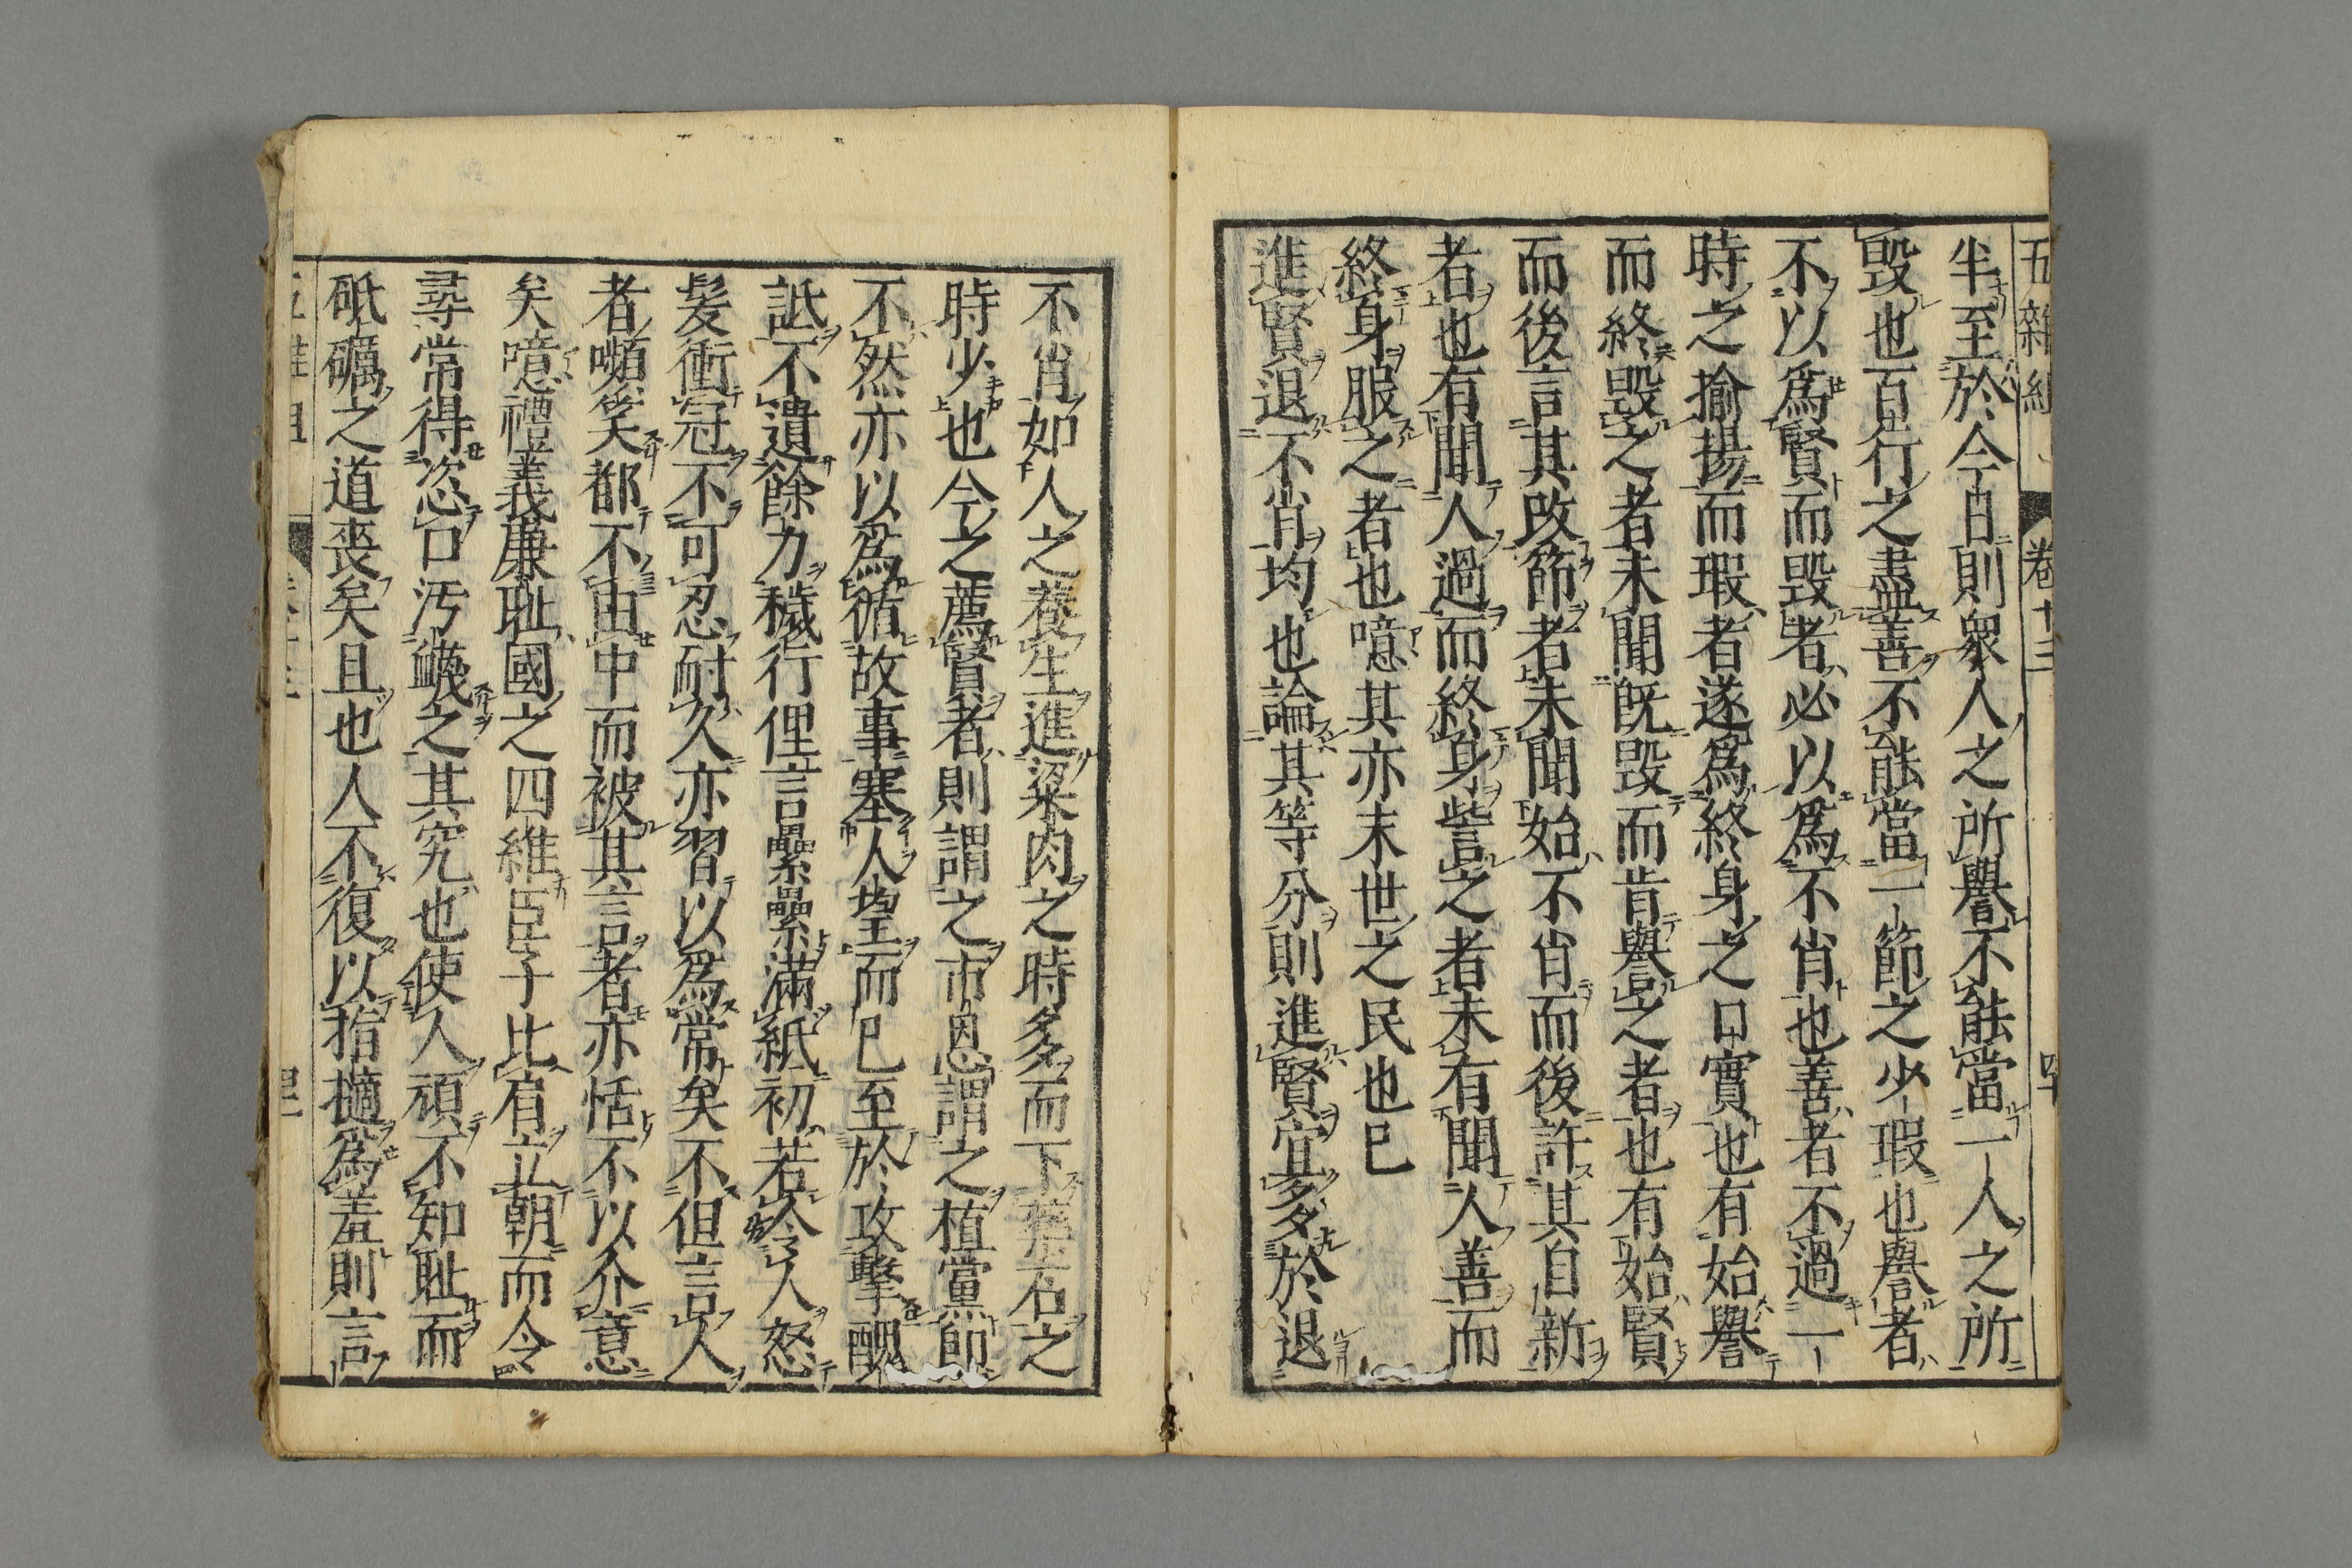 五雜組 卷十三
半至於今日則衆人之所譽不能當一人之所
毀也百行之盡善不能當一節之少瑕也譽者
不以爲賢而毀者必以爲不肖也善者不過一
時之揄揚而瑕者遂爲終身之口實也有始譽
而終毀之者未聞旣毀而肯譽之者也有始賢
而後言其改節者未聞始不肖而後許其自新
者也有聞人過而終身訾之者未有聞人善而
終身服之者也噫其亦末世之民也巳
進賢退不肖均也論其等分則進賢宜多於退
不肖如人之養生進粱肉之時多而下藥石之
時少也今之薦賢者則謂之市恩謂之植黨卽
不然亦以爲循故事塞人望而巳至於攻擊醜
詆不遺餘力穢行俚言纍纍滿紙初若令人怒
髮衝冠不可忍耐久亦習以爲常矣不但言人
者嚬笑都不由中而被其言者亦恬不以介意
矣噫禮義廉耻國之四維臣子比肩立朝而令
尋常得恣口汚衊之其究也使人頑不知耻而
砥礪之道喪矣且也人不復以指擿爲羞則言